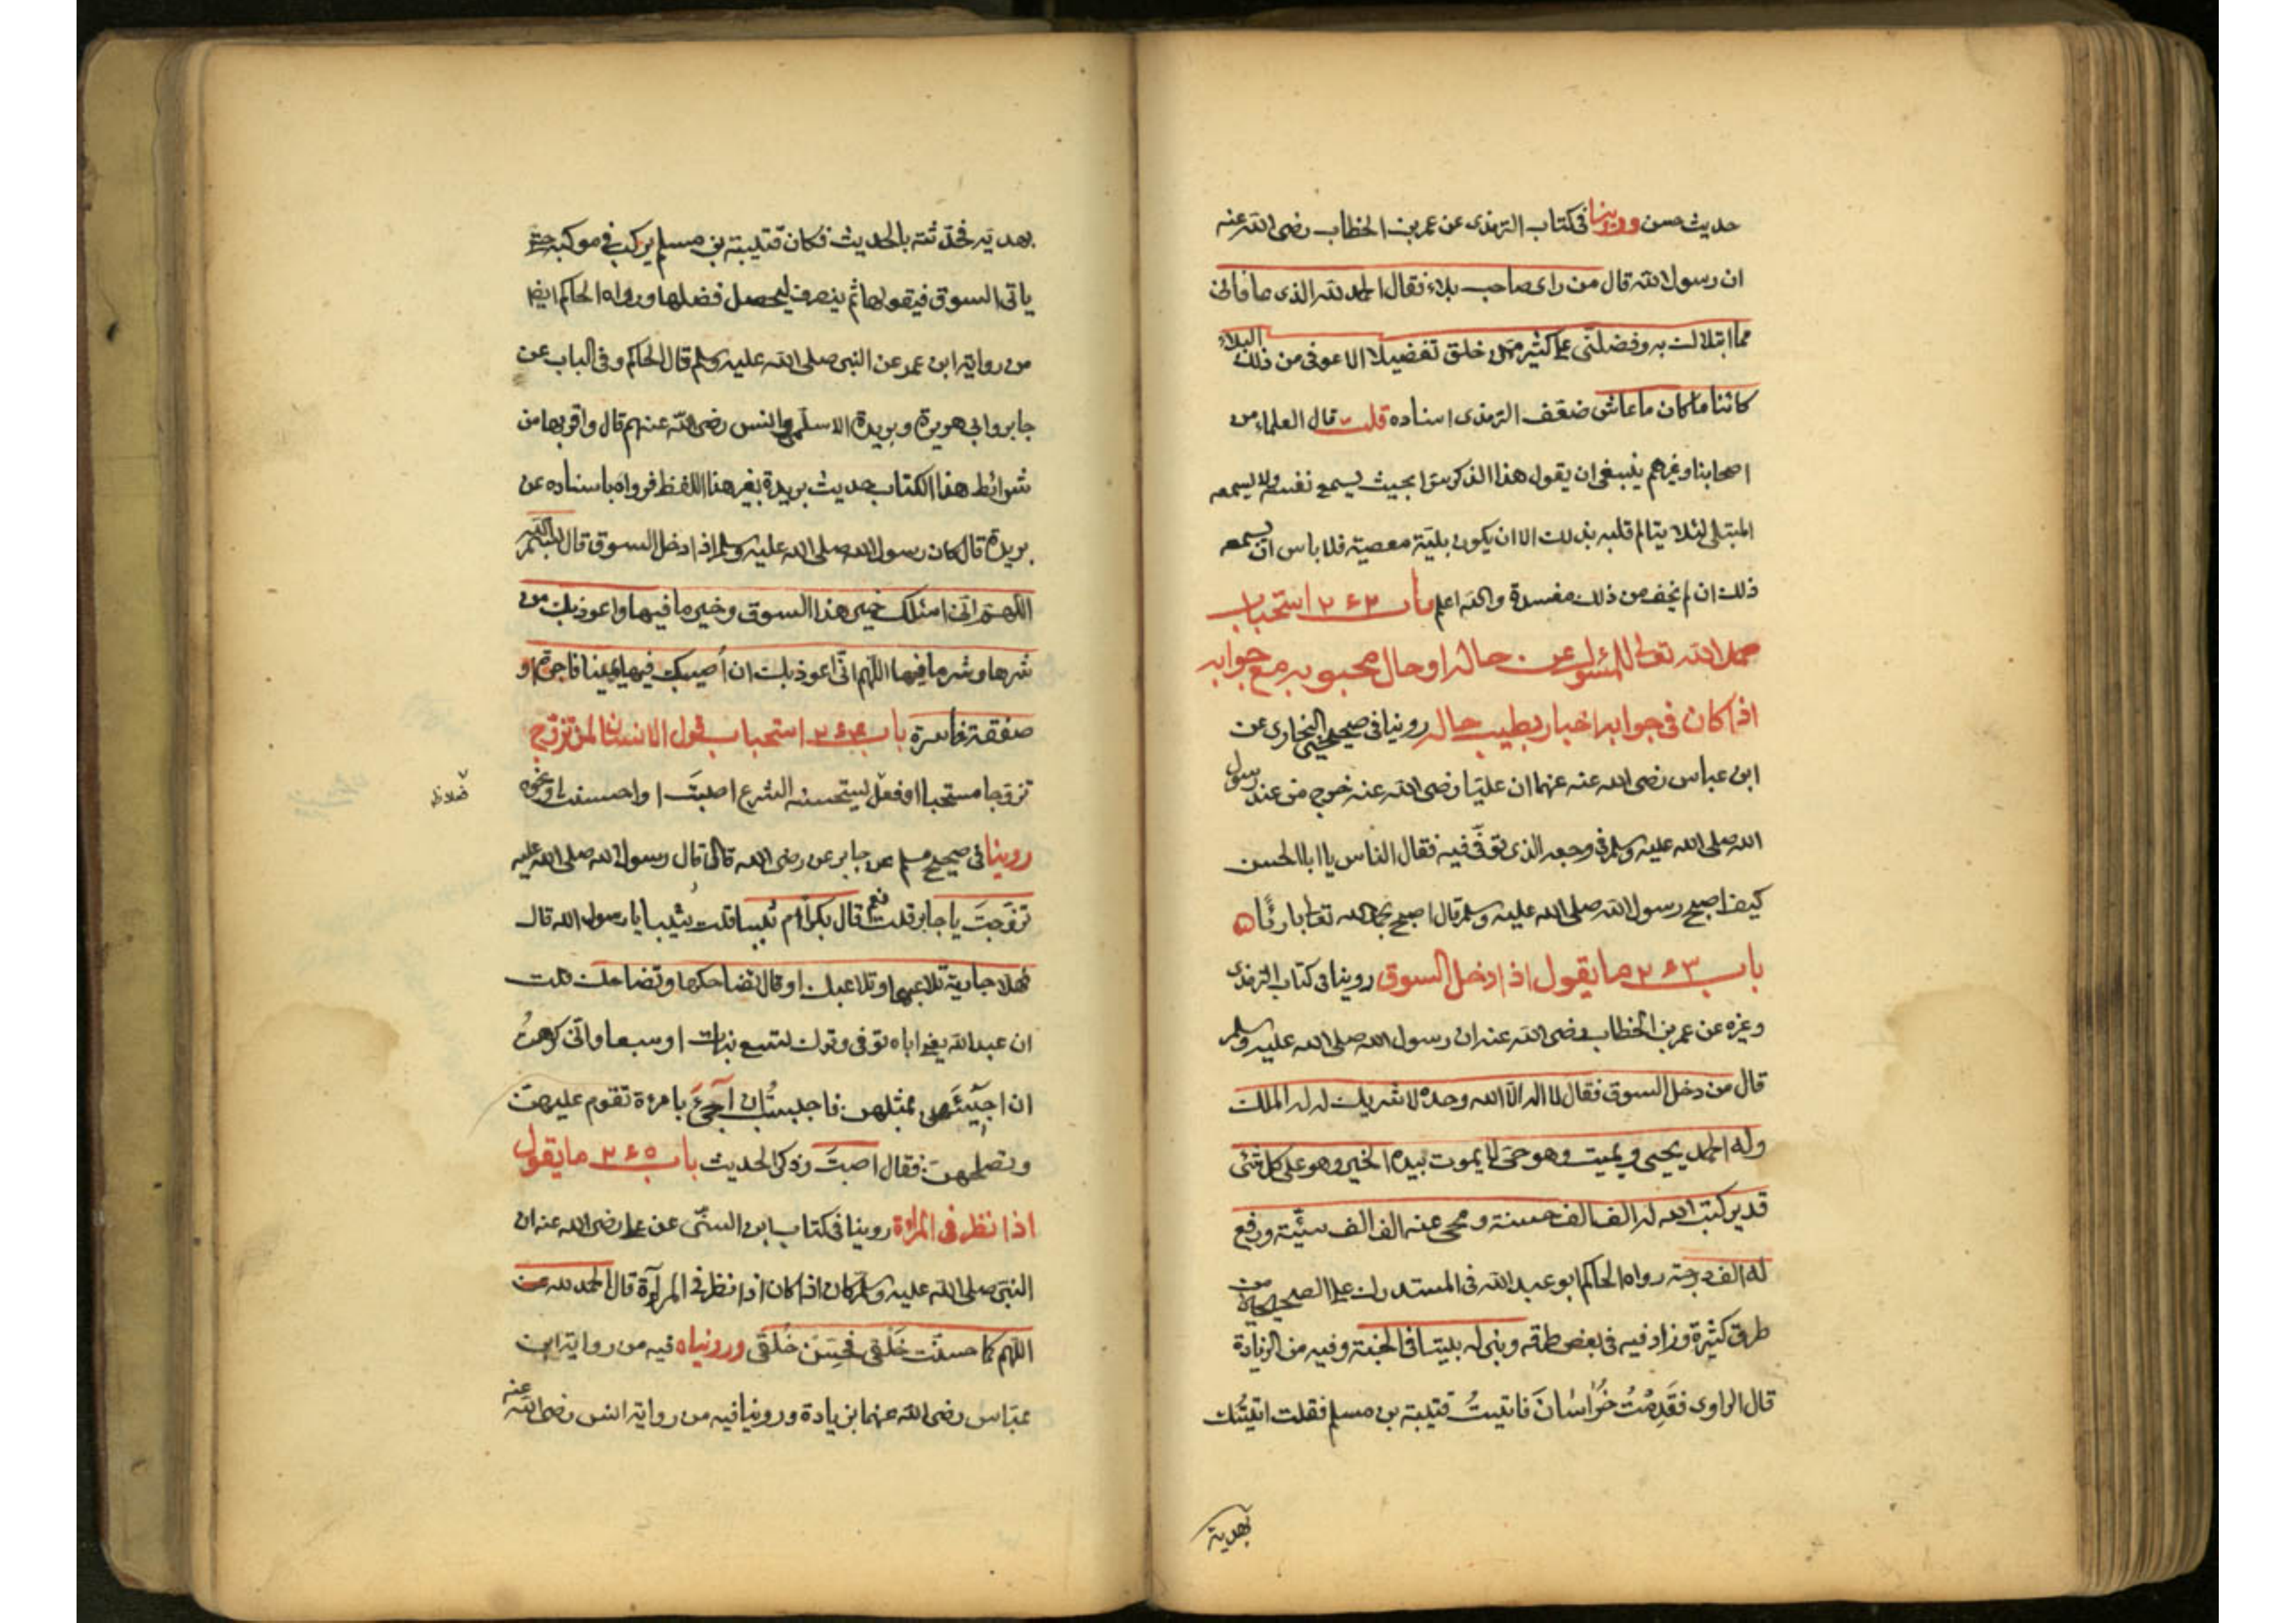 حديث حسن وروينا في كتاب الترمذى عن عمر بن الخطاب رضى الله عنه
ان رسول الله قال من راى صاحب بلاء فقال الحمد لله الذى عافانى
مما ابتلاك به وفضلنى على كثير ممن خلق تفضيلا الا عوفى من ذلك البلاء
كائنا ما كان ما عاش ضعف الترمذى اسناده قلت قال العلماء من
اصحابنا وغيرهم ينبغى ان يقول هذا الذكر سرا بحيث يسمع نفسه ولا يسمعه
المبتلى لئلا يتالم قلبه بذلك الا ان يكون بليّة معصية فلا باس ان يسمعه
ذلك ان لم يخف من ذلك مفسدة والله اعلم باب ٢٦٢ استحباب
حمد الله تعالى للمسئول عن حاله او حال محبوبه مع جوابه
اذا كان فى جوابه اخبار بطيب حاله روينا فى صحيح البخارى عن
ابن عباس رضى الله عنه عنهما ان عليّا رضى الله عنه خرج من عند رسول
الله صلى الله عليه وسلم فى وجعه الذى توفّى فيه فقال الناس يا ابا الحسن
كيف اصبح رسول الله صلى الله عليه وسلم قال اصبح بحمد الله تعالى بارئًا
باب ٢٦٣ ما يقول اذا دخل السوق روينا فى كتاب الترمذى
وغيره عن عمر بن الخطاب رضى الله عنه ان رسول الله صلى الله عليه وسلم
قال من دخل السوق فقال لا اله الّا الله وحده لا شريك له له الملك
وله الحمد يحيى ويميت وهو حىّ لا يموت بيده الخير وهو على كل شئ
قدير كتب الله له الف الف حسنة ومحى عنه الف الف سيّئة ورفع
له الف درجة رواه الحاكم ابو عبد الله فى المستدرك على الصحيحين من
طرق كثيرة وزاد فيه فى بعض طرقه وبنى له بيتا فى الجنة وفيه من الزيادة
قال الراوى فَقَدِمْتُ خُرَاسَانَ فاتيتُ قتيبة بن مسلم فقلت اتيتك
بهدية
بهديّة فحدّثته بالحديث فكان قتيبة بن مسلم يركب فى موكبه حتى
ياتى السوق فيقولها ثم ينصرف ليحصل فضلها ورواه الحاكم ايضا
من رواية ابن عمر عن النبى صلى الله عليه وسلم قال الحاكم وفى الباب عن
جابر وابى هريرة وبريدة الاسلمى وانس رضى الله عنهم قال واقربها من
شرائط هذا الكتاب حديث بريدة بغير هذا اللفظ فرواه باسناده عن
بريدة قال كان رسول الله صلى الله عليه وسلم اذا دخل السوق قال بسم الله
اللهم انى اسئلك خير هذا السوق وخير ما فيها واعوذ بك من
شرها وشر ما فيها اللهم انّى اعوذ بك ان اُصيب فيها يمينا فاجرة او
صفقة خاسرة باب ٢٦٤ استحباب قول الانسان لمن تزوج
تزوجا مستحبا او فعل يستحسنه الشرع اصبتَ او احسنت او نحوه
روينا فى صحيح مسلم عن جابر عن رضى الله قال قال رسول الله صلى الله عليه
تزوّجتَ يا جابر قلت نعم قال بكرًا ام ثيبا قلت ثيبا يا رسول الله قال
فهلا جارية تلاعبها وتلاعبك او قال تضاحكها وتضاحك قلت
ان عبد الله يعنى اباه توفى وترك تسع بنات او سبعا وانّى كرهتُ
ان اجيئَهن بمثلهن فاجببتُ ان اَجِئَ بامرءة تقوم عليهن
وتصلحهن فقال اصبتَ وذكر الحديث باب ٢٦٥ ما يقول
اذا نظر فى المراة روينا فى كتاب ابن السنّى عن على رضى الله عنه ان
النبى صلى الله عليه وسلم كان اذا كان اذا نظر فى المرآة قال الحمد لله
اللهم كما حسنت خَلْقى فحسِّن خُلُقى ورويناه فيه من رواية ابن
عبّاس رضى الله عنهما بزيادة وروينا فيه من رواية انس رضى الله عنه